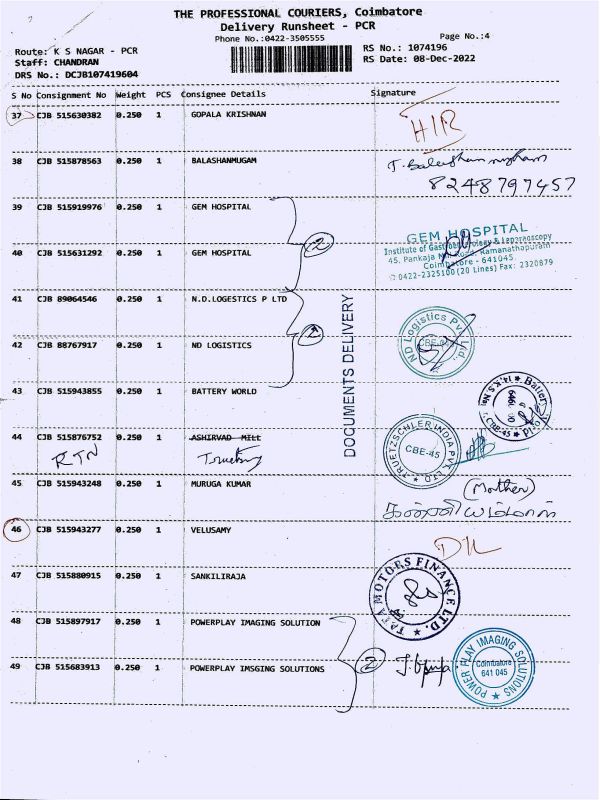 THE PROFESSIONAL COURIERS, Coimbatore
Delivery Runsheet - PCR
Phone No.:0422-3505555
Page No.:4
Route: K S NAGAR - PCR
Staff: CHANDRAN
DRS No.: DCJB107419604
RS No.: 1074196
RS Date: 08-Dec-2022
S No Consignment No Weight PCS Consignee Details Signature
37 CJB 515630382 0.250 1 GOPALA KRISHNAN
HIR
38 CJB 515878563 0.250 1 BALASHANMUGAM
8248797457
39 CJB 515919976 0.250 1 GEM HOSPITAL
2
GEM HOSPITAL
Institute of Gastroenterology & Laparoscopy
45, Pankaja Mill Road, Ramanathapuram
Coimbatore - 641045.
0422-2325100 (20 Lines) Fax: 2320879
40 CJB 515631292 0.250 1 GEM HOSPITAL
41 CJB 89064546 0.250 1 N.D.LOGESTICS P LTD
2
DOCUMENTS DELIVERY
ND Logistics Pvt. Ltd.
CBE-45
42 CJB 88767917 0.250 1 ND LOGISTICS
43 CJB 515943855 0.250 1 BATTERY WORLD
44 CJB 515876752 0.250 1 ASHIRVAD MILL
RTN
TRUETZSCHLER INDIA PVT. LTD.
CBE-45
45 CJB 515943248 0.250 1 MURUGA KUMAR
(Mother)
46 CJB 515943277 0.250 1 VELUSAMY
DL
47 CJB 515880915 0.250 1 SANKILIRAJA
TATA MOTORS FINANCE LTD.
48 CJB 515897917 0.250 1 POWERPLAY IMAGING SOLUTION
2
49 CJB 515683913 0.250 1 POWERPLAY IMSGING SOLUTIONS
POWER PLAY IMAGING SOLUTIONS
Coimbatore
641 045